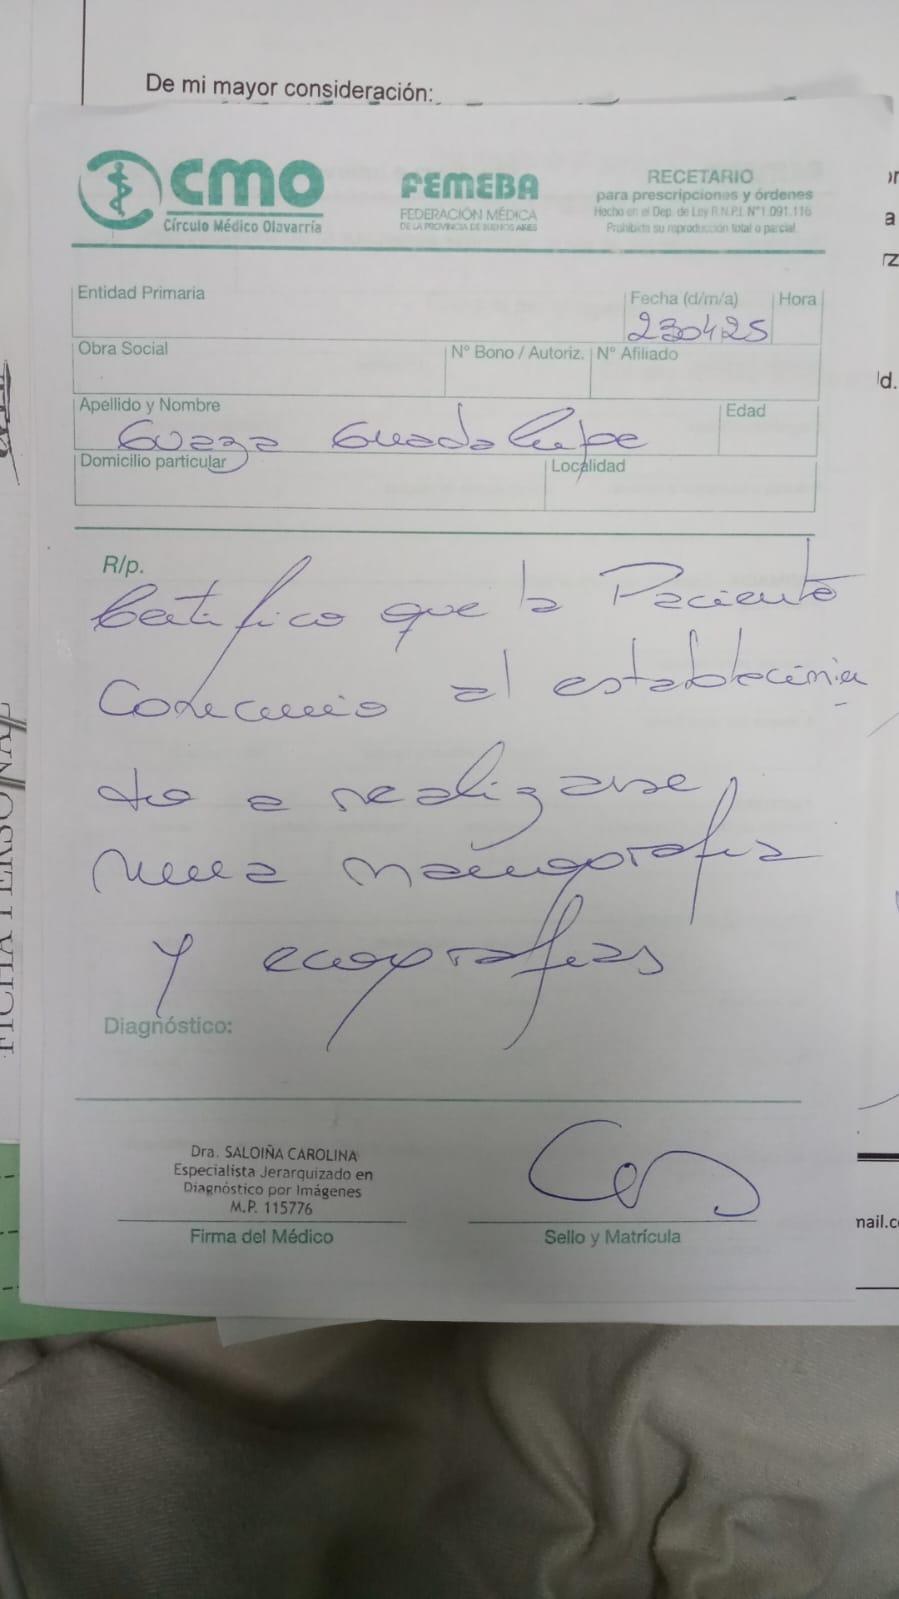 De mi mayor consideración:
CMO
Círculo Médico Olavarría
FEMEBA
FEDERACIÓN MÉDICA
DE LA PROVINCIA DE BUENOS AIRES
RECETARIO
para prescripciones y órdenes
Hecho en el Dep. de Ley R.N.P.I. N°1.091.116
Prohibida su reproducción total o parcial.
Entidad Primaria
Fecha (d/m/a)
Hora
230425
Obra Social
N° Bono / Autoriz.
N° Afiliado
Apellido y Nombre
Edad
Guaza Guadalupe
Domicilio particular
Localidad
R/p.
Certifico que la Paciente
concurrio al establecimien
to a realizarse
una mamografia
y ecografias
Diagnóstico:
Dra. SALOIÑA CAROLINA
Especialista Jerarquizado en
Diagnóstico por Imágenes
M.P. 115776
Firma del Médico
Sello y Matrícula
FICHA PERSONAL
mail.c